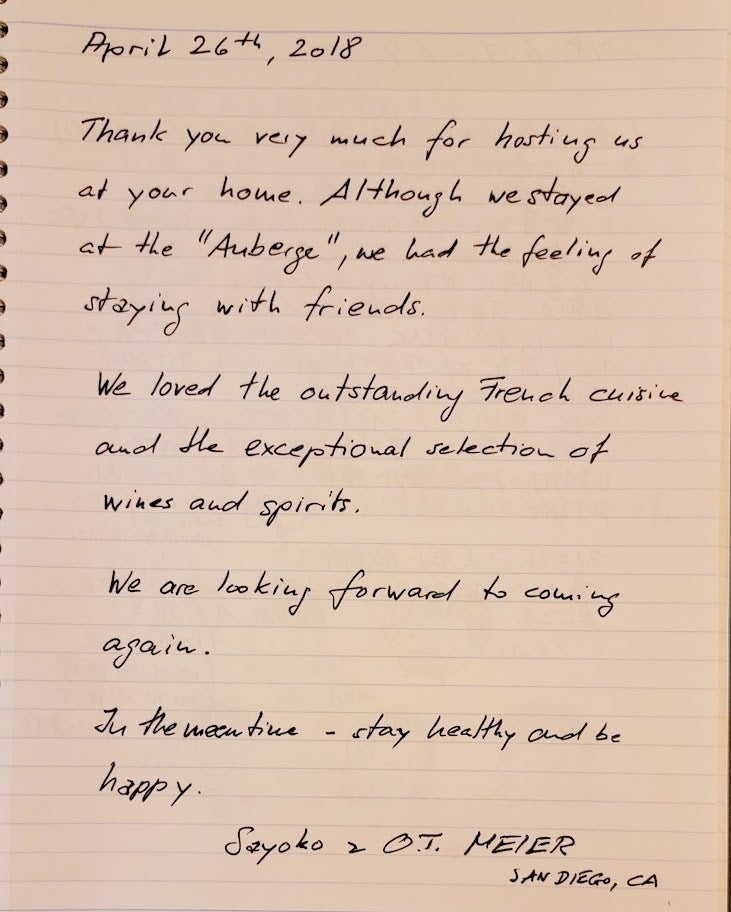 April 26th, 2018
Thank you very much for hosting us
at your home. Although we stayed
at the "Auberge", we had the feeling of
staying with friends.
We loved the outstanding French cuisine
and the exceptional selection of
wines and spirits.
We are looking forward to coming
again.
In the meantime - stay healthy and be
happy.
Sayoko & O.T. MEIER
SAN DIEGO, CA